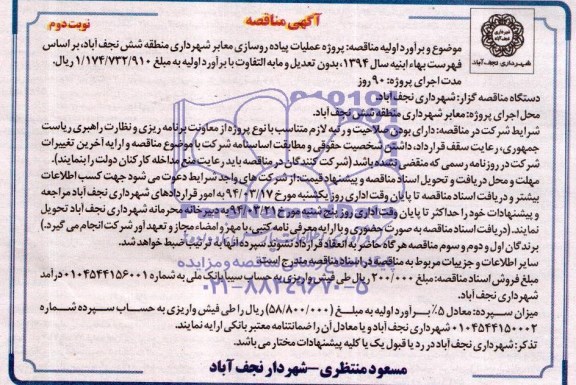 آگهی مناقصه
نوبت دوم
شهرداری نجف آباد
موضوع و برآورد اولیه مناقصه: پروژه عملیات پیاده روسازی معابر شهرداری منطقه شش نجف آباد، بر اساس
فهرست بهاء ابنیه سال ۱۳۹۴، بدون تعدیل و مابه التفاوت با برآورد اولیه به مبلغ ۱/۱۷۴/۷۳۲/۹۱۰ ریال.
مدت اجرای پروژه: ۹۰ روز
دستگاه مناقصه گزار: شهرداری نجف آباد.
محل اجرای پروژه: معابر شهرداری منطقه شش نجف آباد.
شرایط شرکت در مناقصه: دارای بودن صلاحیت و رتبه لازم متناسب با نوع پروژه از معاونت برنامه ریزی و نظارت راهبری ریاست
جمهوری، رعایت سقف قرارداد، داشتن شخصیت حقوقی و مطابقت اساسنامه شرکت با موضوع مناقصه و ارایه آخرین تغییرات
شرکت در روزنامه رسمی که منقضی نشده باشد (شرکت کنندگان در مناقصه باید رعایت منع مداخله کارکنان دولت را بنمایند).
مهلت و محل دریافت و تحویل اسناد مناقصه و پیشنهاد قیمت: از شرکت های واجد شرایط دعوت می شود جهت کسب اطلاعات
بیشتر و دریافت اسناد مناقصه تا پایان وقت اداری روز یکشنبه مورخ ۹۴/۰۳/۱۷ به امور قراردادهای شهرداری نجف آباد مراجعه
و پیشنهادات خود را حداکثر تا پایان وقت اداری روز پنج شنبه مورخ ۹۴/۰۳/۲۱ به دبیرخانه محرمانه شهرداری نجف آباد تحویل
نمایند. (دریافت اسناد مناقصه به صورت حضوری و با ارایه معرفی نامه کتبی با مهر و امضاء مجاز و تعهد آور شرکت انجام می گیرد.)
برندگان اول و دوم و سوم مناقصه هر گاه حاضر به انعقاد قرارداد نشوند سپرده آنها به ترتیب ضبط خواهد شد.
سایر اطلاعات و جزییات مربوط به مناقصه در اسناد مناقصه مندرج است.
مبلغ فروش اسناد مناقصه: مبلغ ۲۰۰/۰۰۰ ریال طی فیش واریزی به حساب سیبا بانک ملی به شماره ۰۱۰۴۵۴۴۱۵۶۰۰۱ درآمد
شهرداری نجف آباد.
میزان سپرده: معادل ۵٪ برآورد اولیه به مبلغ (۵۸/۸۰۰/۰۰۰) ریال را طی فیش واریزی به حساب سپرده شماره
۰۱۰۴۵۴۴۱۵۰۰۰۲ شهرداری نجف آباد و یا معادل آن را ضمانتنامه معتبر بانکی ارایه نمایند.
تذکر: شهرداری نجف آباد در رد یا قبول یک یا کلیه پیشنهادات مختار می باشد.
مسعود منتظری - شهردار نجف آباد
۰۲۱-۸۸۳۴۹۶۷۰-۵